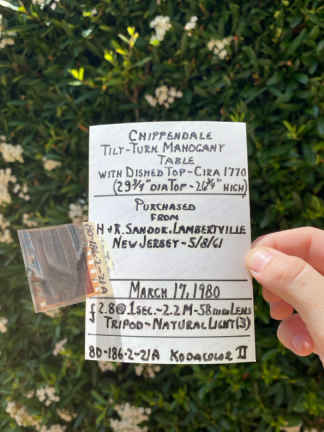 CHIPPENDALE
TILT-TURN MAHOGANY
TABLE
WITH DISHED TOP-CIRA 1770
(29 3/4" DIA TOP - 26 3/4" HIGH)
PURCHASED
FROM
H + R. SANDOR. LAMBERTVILLE
NEW JERSEY - 5/8/61
MARCH 17, 1980
f 2.8@1 SEC. - 2.2M - 58mm LENS
TRIPOD - NATURAL LIGHT (3)
80-186-2-21A KODACOLOR II